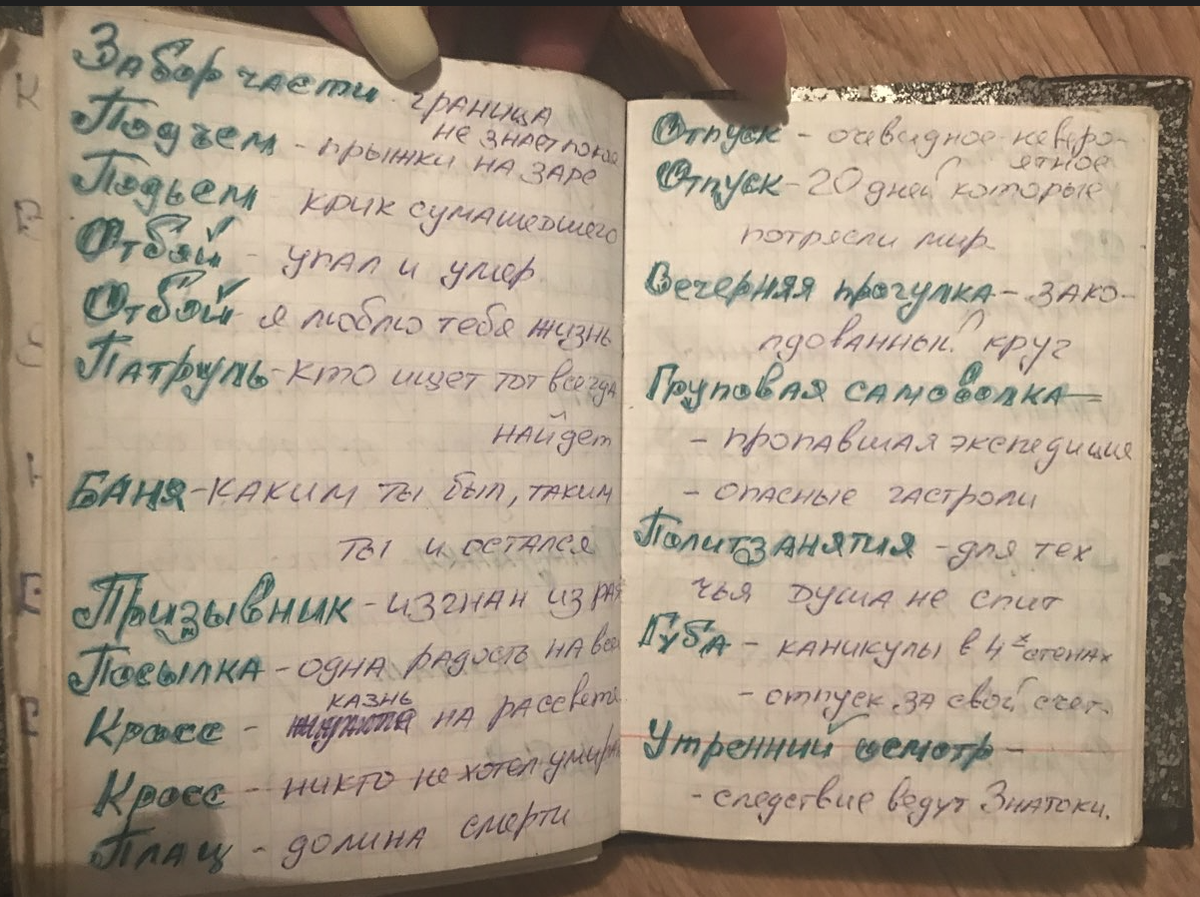 Забор части - граница
не знает покоя
Подъем - прыжки на заре
Подьем крик сумашедшего
Отбой - упал и умер
Отбой - я люблю тебя жизнь
Патруль - кто ищет тот всегда
найдет
Баня - каким ты был, таким
ты и остался
Призывник - изгнан из рая
Посылка - одна радость на всех
казнь
Кросс - на рассвете
Кросс - никто не хотел умирать
Плац - долина смерти
Отпуск - очевидное-неверо-
ятное
Отпуск - 20 дней которые
потрясли мир
Вечерняя прогулка - зако-
лдованный круг
Груповая самоволка -
- пропавшая экспедиция
- опасные гастроли
Политзанятия - для тех
чья душа не спит
Губа - каникулы в 4х стенах
- отпуск за свой счет.
Утренний осмотр -
- следствие ведут Знатоки.